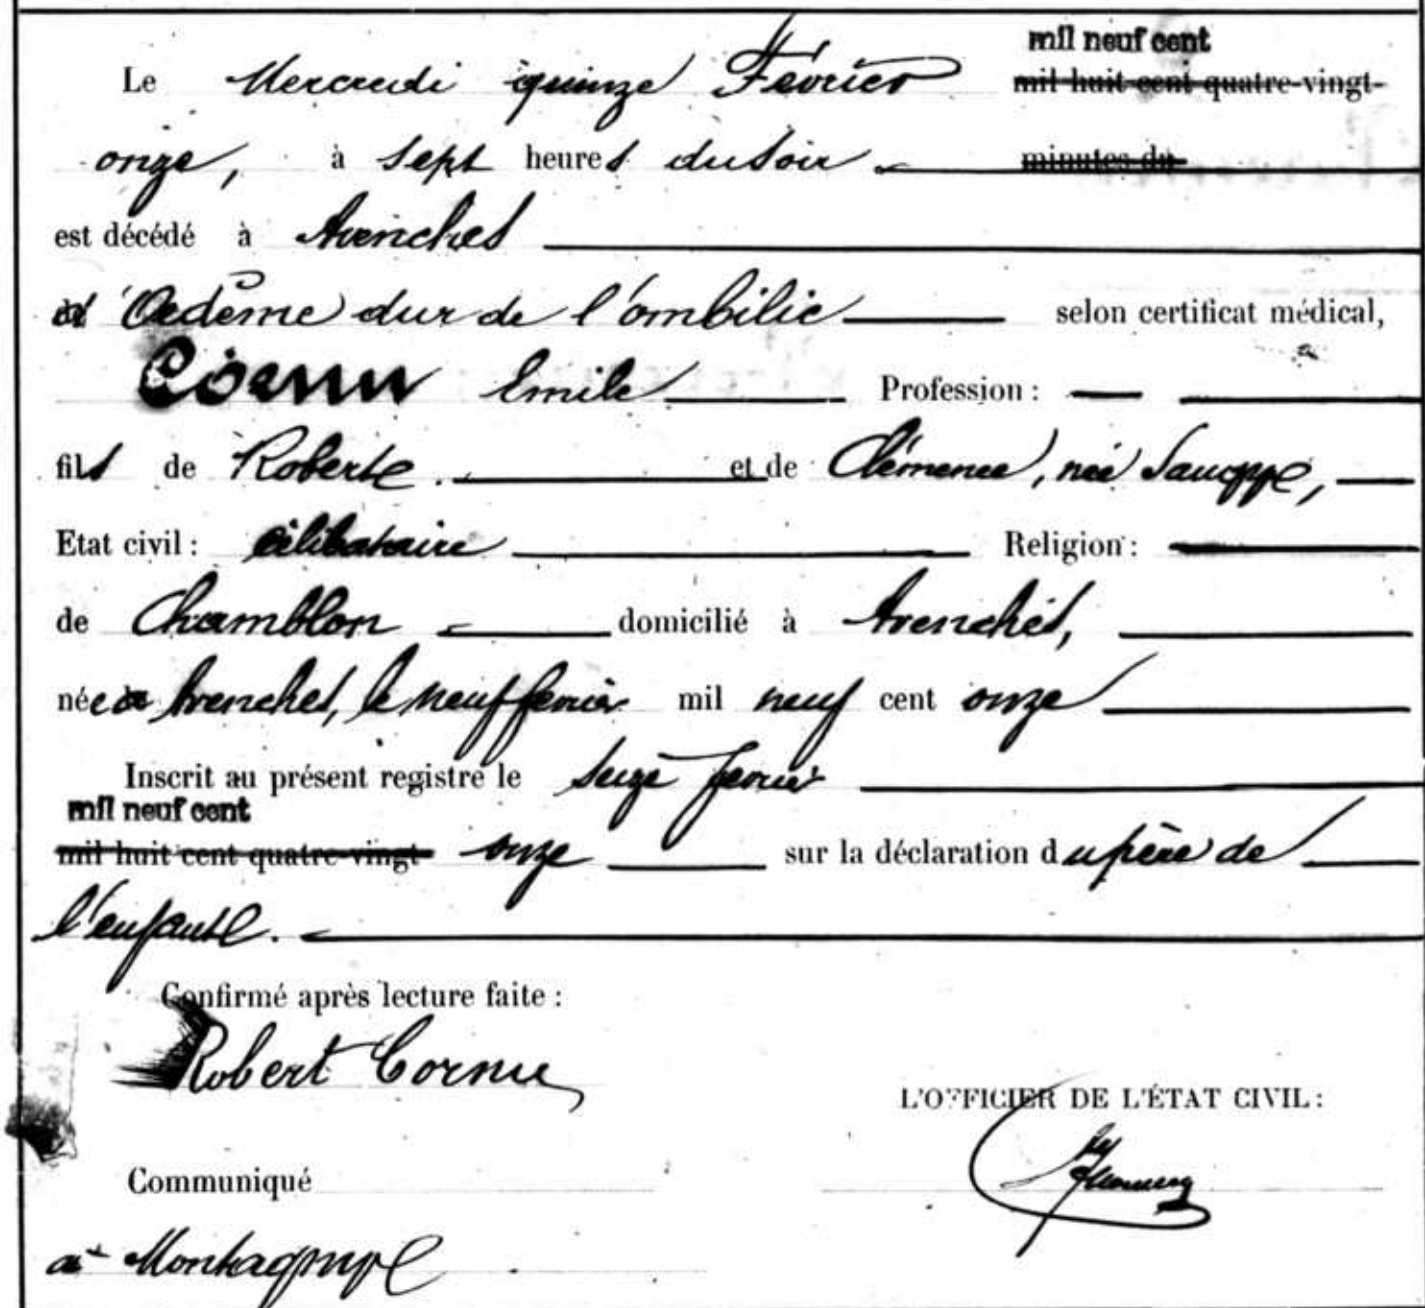 mil neuf cent
Le Mercredi quinze Février mil huit cent quatre-vingt-
onze, à sept heures du soir minutes du
est décédé à Avenches
d'Oedème dur de l'ombilic selon certificat médical,
Cornu Emile Profession :
fils de Robert et de Clémence, née
Etat civil : célibataire Religion :
de Chamblon domicilié à Avenches,
né à Avenches, le neuf fevrier mil neuf cent onze
Inscrit au présent registre le seize fevrier
mil neuf cent
mil huit cent quatre-vingt onze sur la déclaration du père de
l'enfant.
Confirmé après lecture faite :
Robert Cornu
L'OFFICIER DE L'ÉTAT CIVIL :
Communiqué
à Montagny